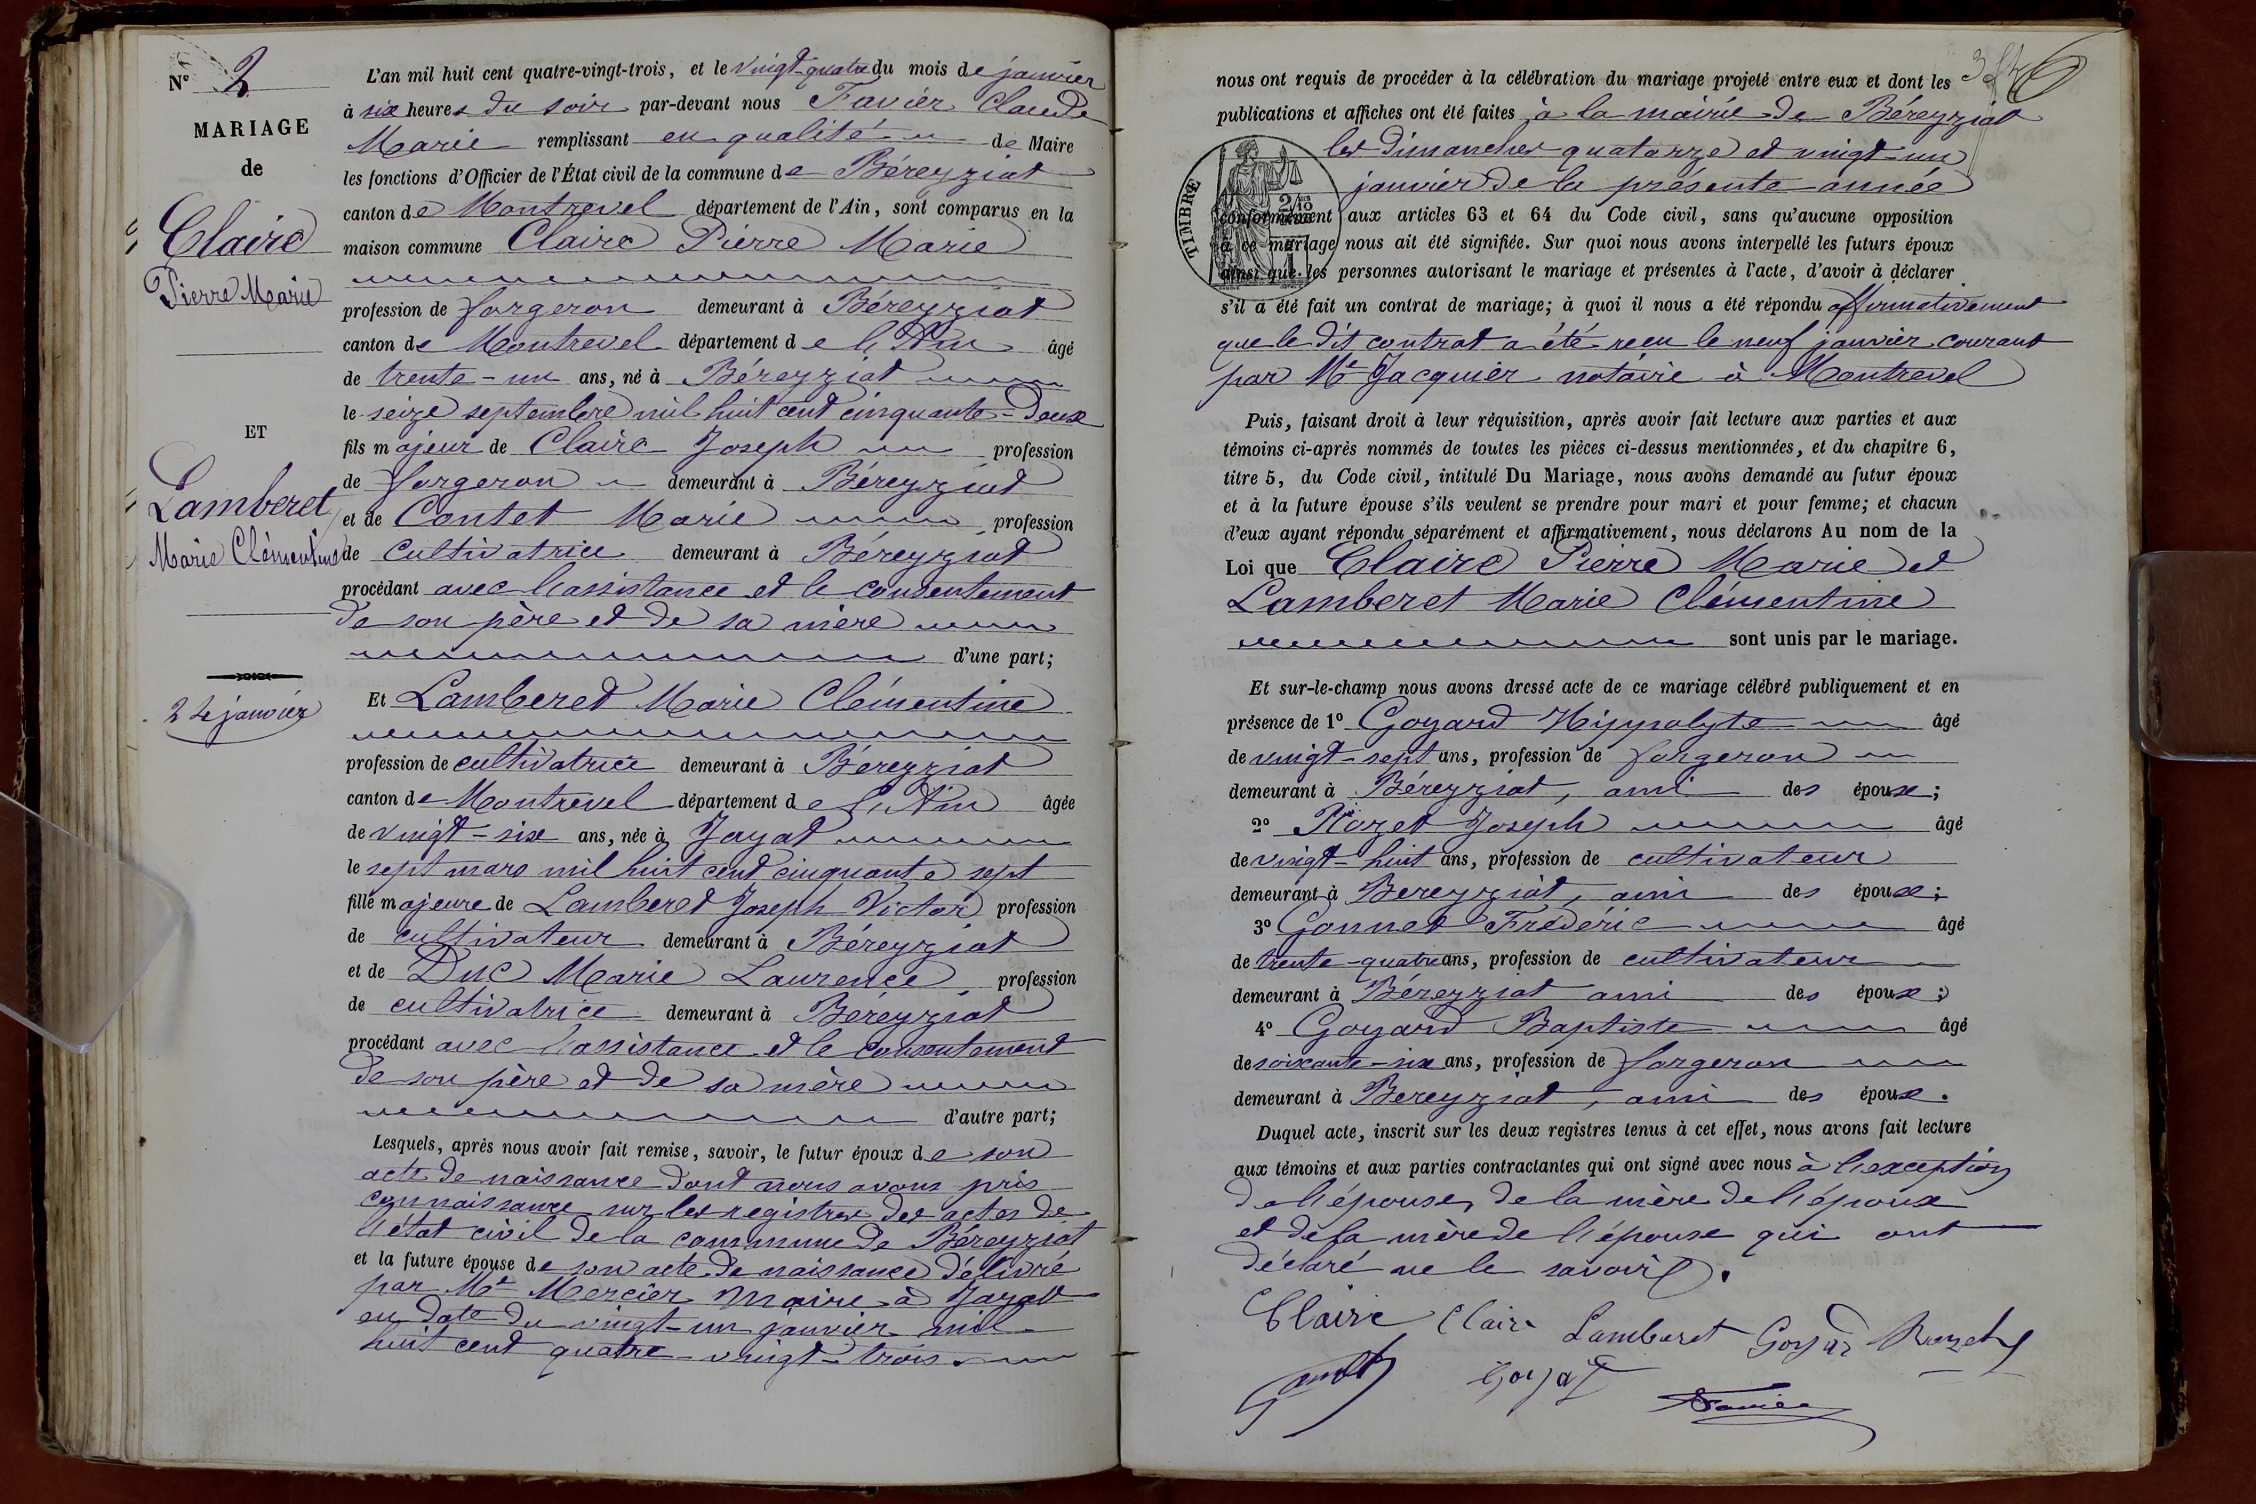 N° 2
MARIAGE
de
Claire
Pierre Marie
ET
Lamberet
Marie Clémentine
24 janvier
L'an mil huit cent quatre-vingt-trois, et le vingt-quatre du mois de janvier
à six heures du soir par-devant nous Favier Claude
Marie remplissant en qualité de Maire
les fonctions d'Officier de l'État civil de la commune de Béreyziat
canton de Montrevel département de l'Ain, sont comparus en la
maison commune Claire Pierre Marie
profession de forgeron demeurant à Béreyziat
canton de Montrevel département de l'Ain âgé
de trente-un ans, né à Béreyziat
le seize septembre mil huit cent cinquante-deux
fils majeur de Claire Joseph profession
de forgeron demeurant à Béreyziat
et de Contet Marie profession
de cultivatrice demeurant à Béreyziat
procédant avec l'assistance et le consentement
de son père et de sa mère
d'une part;
Et Lamberet Marie Clémentine
profession de cultivatrice demeurant à Béreyziat
canton de Montrevel département de l'Ain âgée
de vingt-six ans, née à Jayat
le sept mars mil huit cent cinquante sept
fille majeure de Lamberet Joseph Victor profession
de cultivateur demeurant à Béreyziat
et de Duc Marie Laurence profession
de cultivatrice demeurant à Béreyziat
procédant avec l'assistance et le consentement
de son père et de sa mère
d'autre part;
Lesquels, après nous avoir fait remise, savoir, le futur époux de son
acte de naissance dont nous avons pris
connaissance sur les registres des actes de
l'état civil de la commune de Béreyziat
et la future épouse de son acte de naissance délivré
par Me Mercier Maire à Jayat
en date du vingt-un janvier mil
huit cent quatre-vingt-trois.
nous ont requis de procéder à la célébration du mariage projeté entre eux et dont les
publications et affiches ont été faites à la mairie de Béreyziat
les dimanches quatorze et vingt-un
janvier de la présente année
TIMBRE
conformément aux articles 63 et 64 du Code civil, sans qu'aucune opposition
à ce mariage nous ait été signifiée. Sur quoi nous avons interpellé les futurs époux
ainsi que les personnes autorisant le mariage et présentes à l'acte, d'avoir à déclarer
s'il a été fait un contrat de mariage; à quoi il nous a été répondu affirmativement
que le dit contrat a été reçu le neuf janvier courant
par Me Jacquier notaire à Montrevel
Puis, faisant droit à leur réquisition, après avoir fait lecture aux parties et aux
témoins ci-après nommés de toutes les pièces ci-dessus mentionnées, et du chapitre 6,
titre 5, du Code civil, intitulé Du Mariage, nous avons demandé au futur époux
et à la future épouse s'ils veulent se prendre pour mari et pour femme; et chacun
d'eux ayant répondu séparément et affirmativement, nous déclarons Au nom de la
Loi que Claire Pierre Marie et
Lamberet Marie Clémentine
sont unis par le mariage.
Et sur-le-champ nous avons dressé acte de ce mariage célébré publiquement et en
présence de 1° Goyard Hippolyte âgé
de vingt-sept ans, profession de forgeron
demeurant à Béreyziat, ami des époux;
2° Rozet Joseph âgé
de vingt-huit ans, profession de cultivateur
demeurant à Bereyziat, ami des époux;
3° Gonnet Frédéric âgé
de trente-quatre ans, profession de cultivateur
demeurant à Béreyziat ami des époux;
4° Goyard Baptiste âgé
de soixante-six ans, profession de forgeron
demeurant à Bereyziat, ami des époux.
Duquel acte, inscrit sur les deux registres tenus à cet effet, nous avons fait lecture
aux témoins et aux parties contractantes qui ont signé avec nous à l'exception
de l'épouse, de la mère de l'époux
et de la mère de l'épouse qui ont
déclaré ne le savoir.
Claire Claire Lamberet Goyard Rozet
Goyard
Favier